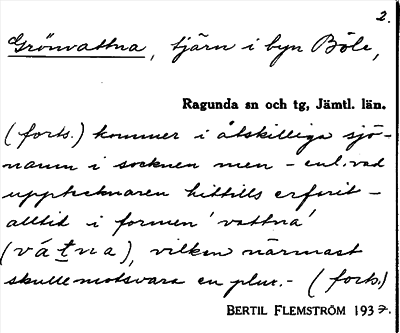 2.
Grönvattna, tjärn i byn Böle,
Ragunda sn och tg, Jämtl. län.
(forts.) kommer i åtskilliga sjö-
namn i socknen men – enl. vad
upptecknaren hittills erfarit –
alltid i formen 'vattna'
(vátna), vilken närmast
skulle motsvara en plur.- (forts.)
BERTIL FLEMSTRÖM 1937.